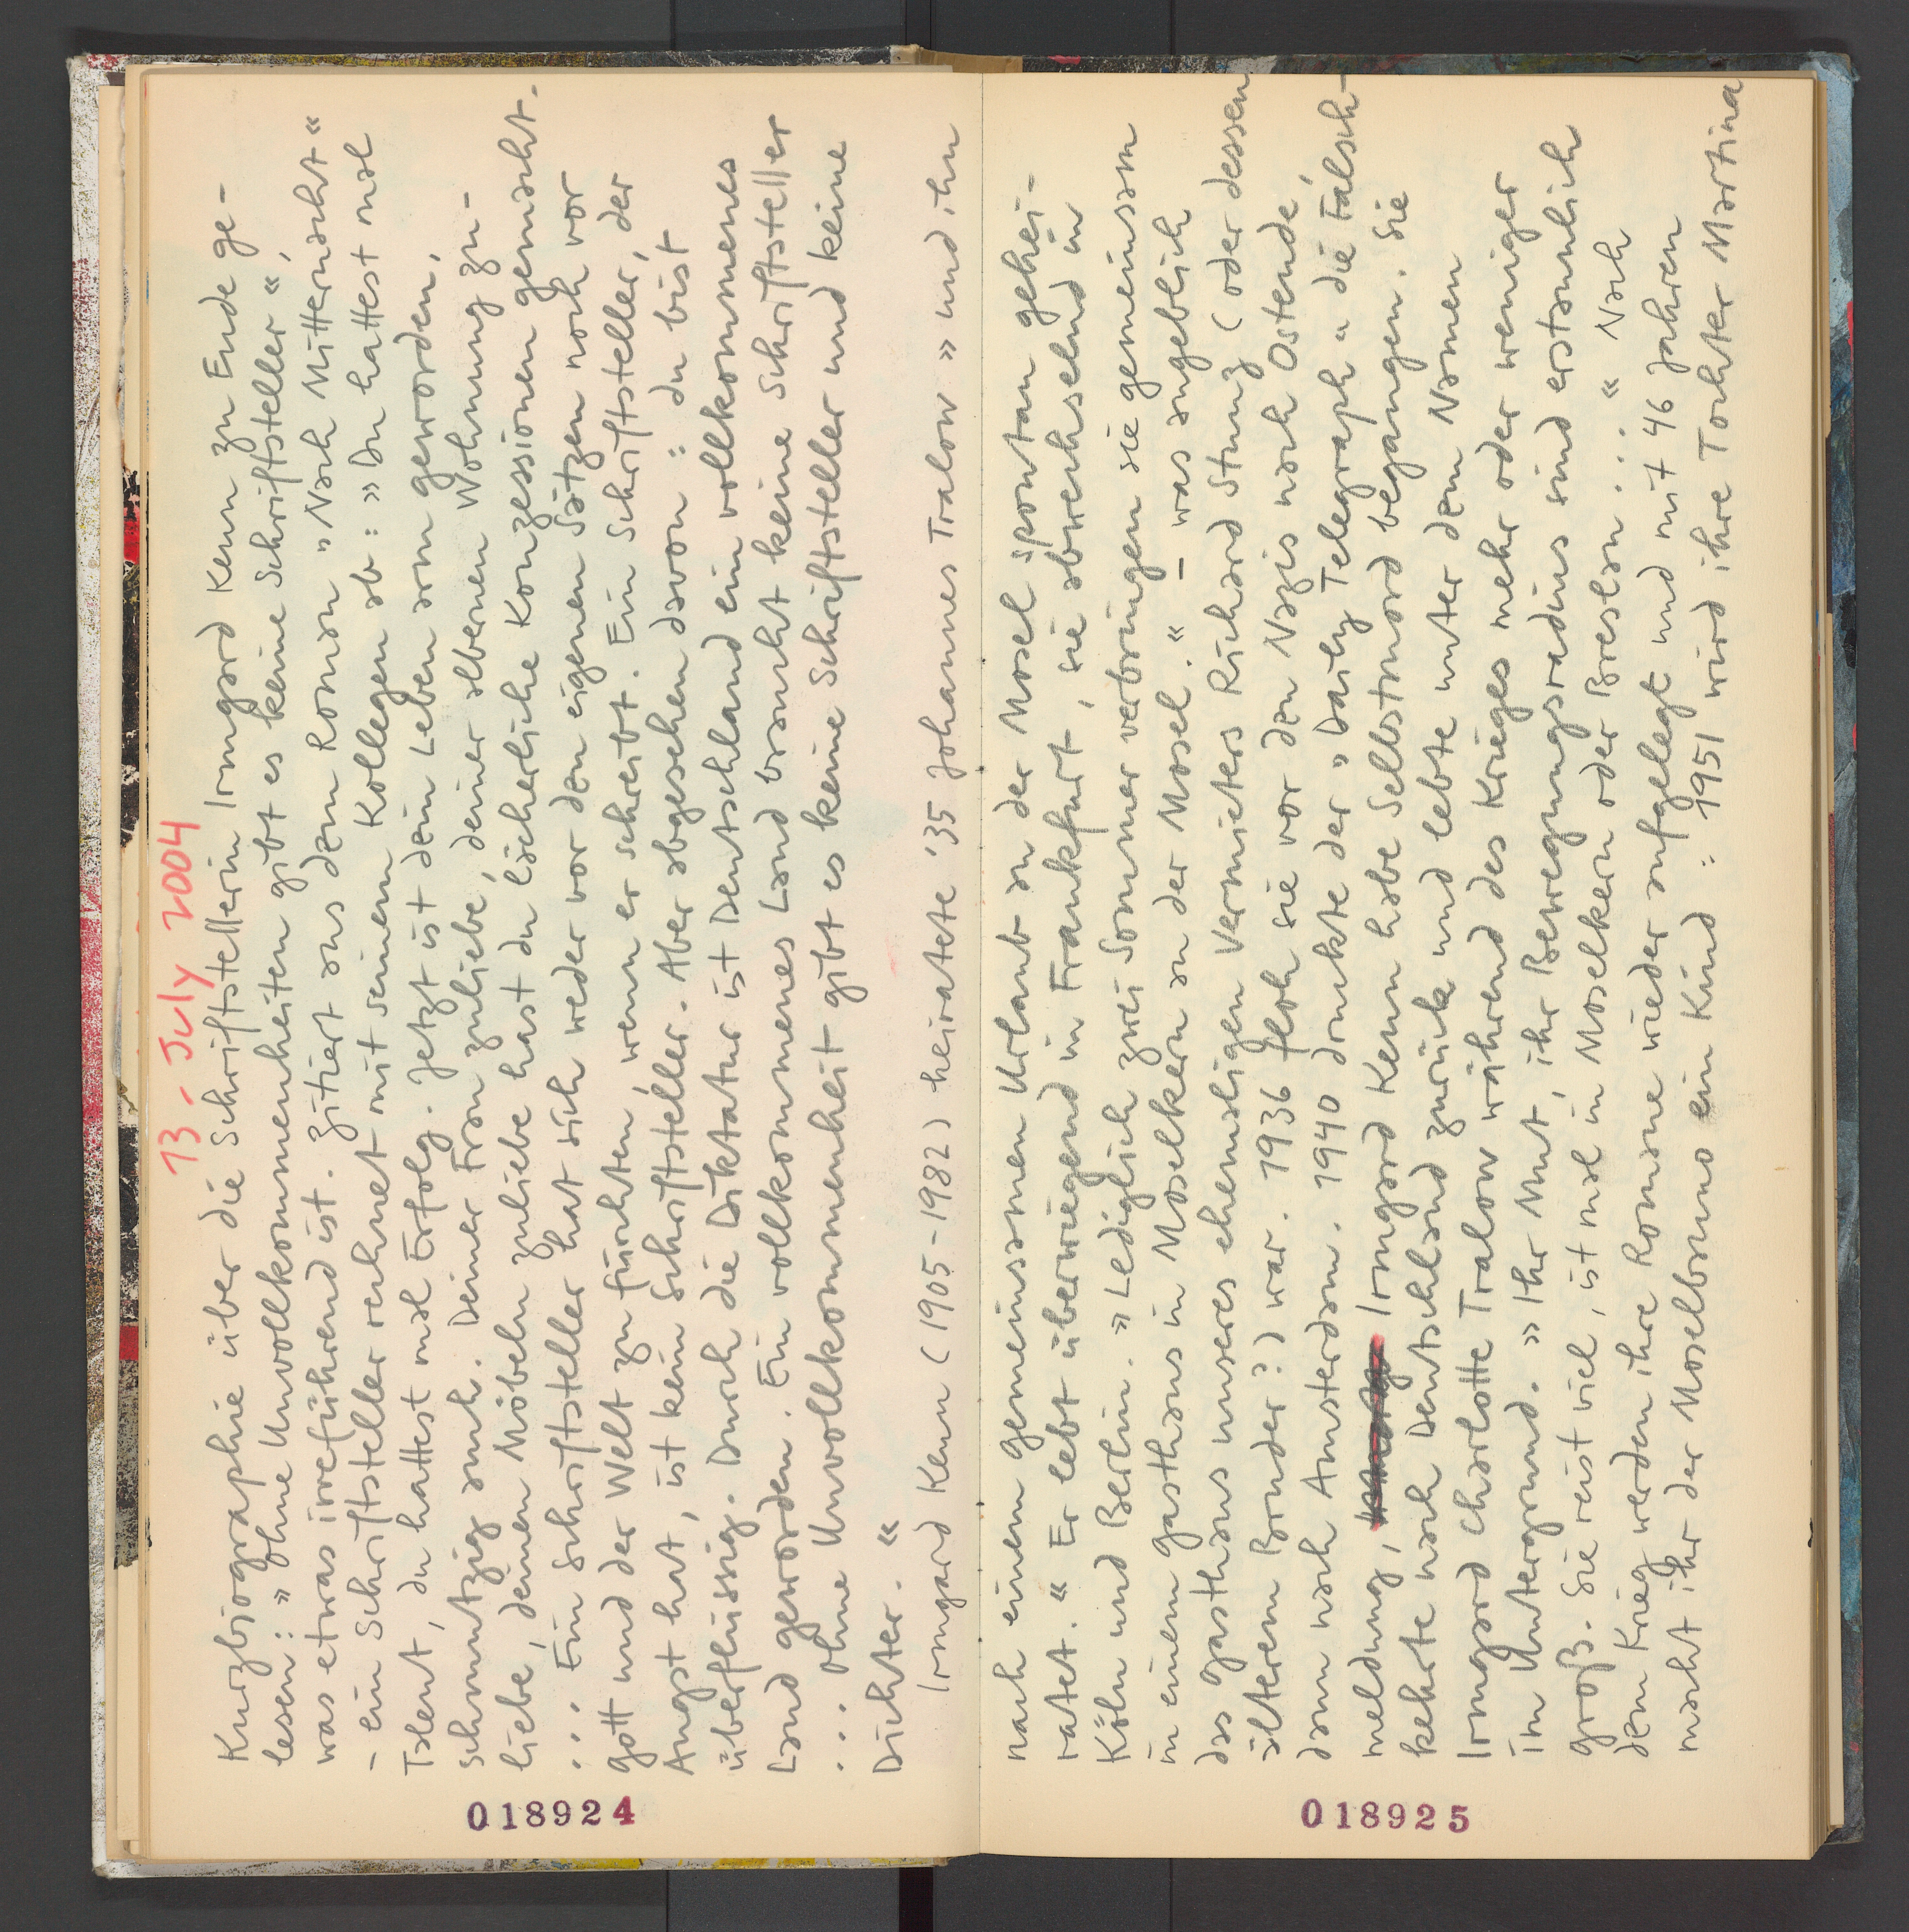 13 - July 2004
Kurzbiographie über die Schriftstellerin Irmgard Keun zu Ende ge-
lesen: »Ohne Unvollkommenheiten gibt es keine Schriftsteller“,
was etwas irreführend ist. Zitiert aus dem Roman „Nach Mitternacht“
- ein Schriftsteller rechnet mit seinem Kollegen ab: »Du hattest mal
Talent, du hattest mal Erfolg. Jetzt ist dein Leben arm geworden,
schmutzig auch. Deiner Frau zuliebe, deiner albernen Wohnung zu-
liebe, deinen Möbeln zuliebe hast du lächerliche Konzessionen gemacht.
... Ein Schriftsteller hat sich weder vor den eigenen Sätzen noch vor
Gott und der Welt zu fürchten, wenn er schreibt. Ein Schriftsteller, der
Angst hat, ist kein Schriftsteller. Aber abgesehen davon: du bist
überflüssig. Durch die Diktatur ist Deutschland ein vollkommenes
Land geworden. Ein vollkommenes Land braucht keine Schriftsteller
... Ohne Unvollkommenheit gibt es keine Schriftsteller und keine
Dichter.“
Irmgard Keun (1905-1982) heiratete '35 Johannes Tralow »und ihn
018924
nach einem gemeinsamen Urlaub an der Mosel spontan gehei-
ratet.“ Er lebt überwiegend in Frankfurt, sie abwechselnd in
Köln und Berlin. »Lediglich zwei Sommer verbringen sie gemeinsam
in einem Gasthaus in Moselkern an der Mosel.“ – was angeblich
das Gasthaus unseres ehemaligen Vermieters Richard Stumj (oder dessen
älterem Bruder?) war. 1936 floh sie vor den Nazis nach Ostende,
dann nach Amsterdam. 1940 druckte der „Daily Telegraph“ die Falsch-
meldung, Irmgard Keun habe Selbstmord begangen. Sie
kehrte nach Deutschland zurück und lebte unter dem Namen
Irmgard Charlotte Tralow während des Krieges mehr oder weniger
im Untergrund. »Ihr Mut, ihr Bewegungsradius sind erstaunlich
groß. Sie reist viel, ist mal in Moselkern oder Breslau...“ Nach
dem Krieg werden ihre Romane wieder aufgelegt und mit 46 Jahren
macht ihr der Moselbruno ein Kind: 1951 wird ihre Tochter Martina
018925